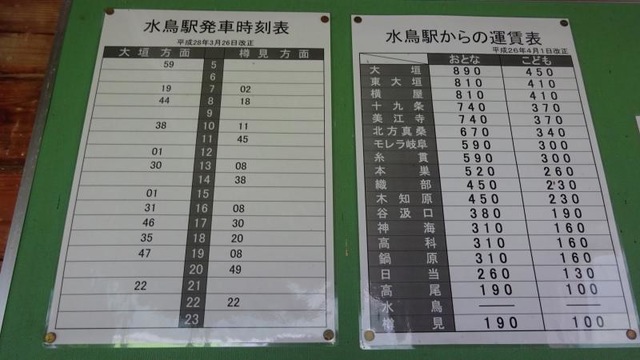 水鳥駅発車時刻表
平成28年3月26日改正
大垣方面 樽見方面
59 5
6
19 7 02
44 8 18
9
38 10 11
11 45
01 12
30 13 08
14 38
01 15
31 16 08
46 17 30
35 18 20
47 19 08
20 49
22 21
22 22
23
水鳥駅からの運賃表
平成26年4月1日改正
おとな こども
大垣 890 450
東大垣 810 410
横屋 810 410
十九条 740 370
美江寺 740 370
北方真桑 670 340
モレラ岐阜 590 300
糸貫 590 300
本巣 520 260
織部 450 230
木知原 450 230
谷汲口 380 190
神海 310 160
高科 310 160
鍋原 310 160
日当 260 130
高尾 190 100
水鳥 ── ──
樽見 190 100